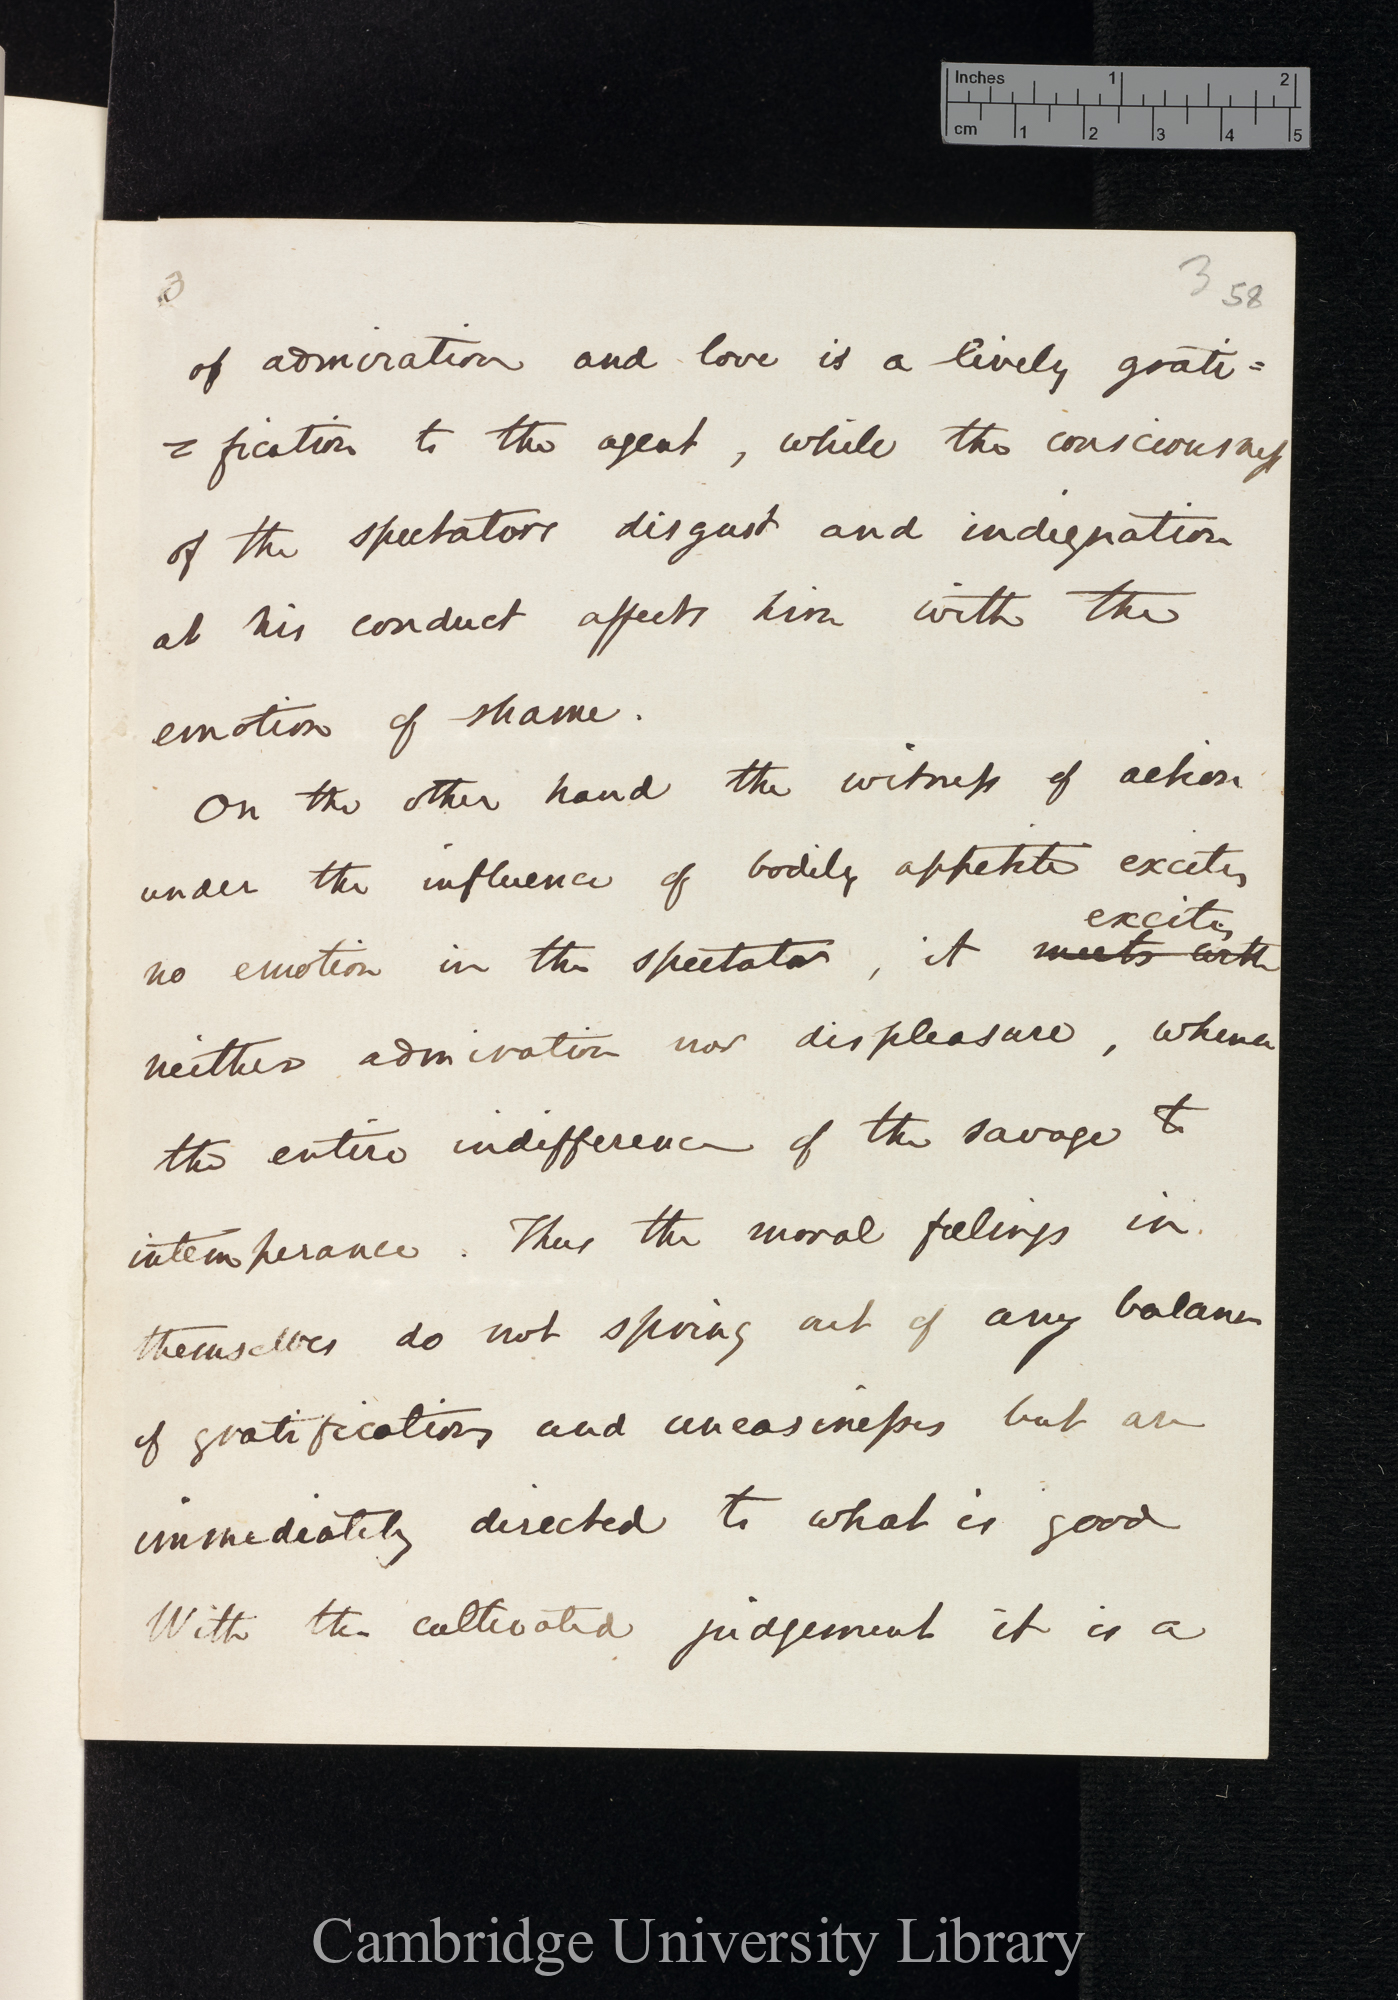 Inches 1 2
cm 1 2 3 4 5
3
3 58
of admiration and love is a lively grati=
=fication to the agent, while the consciousness
of the spectators disgust and indignation
at his conduct affects him with the
emotion of shame.
On the other hand the witness of action
under the influence of bodily appetite excites
no emotion in the spectator, it meets with
excites
neither admiration nor displeasure, whence
the entire indifference of the savage to
intemperance. Thus the moral feelings in
themselves do not spring out of any balance
of gratifications and uneasinesses but are
immediately directed to what is good
With the cultivated judgement it is a
Cambridge University Library